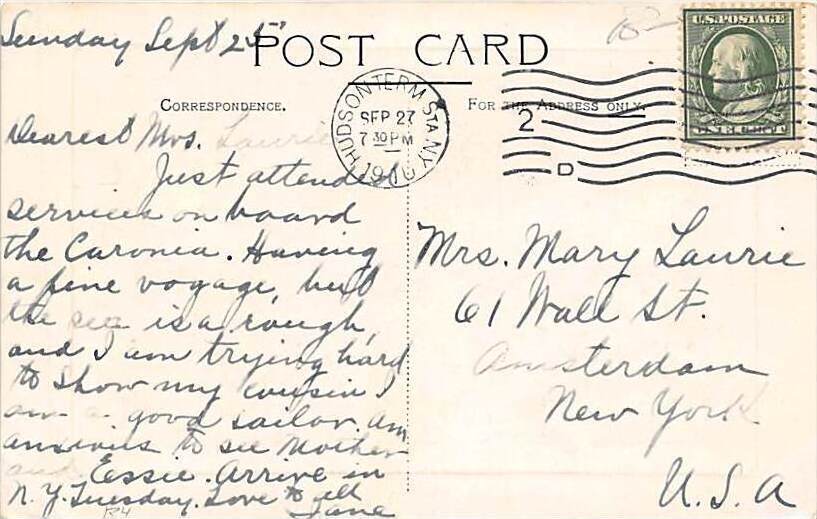 Sunday Sept 25
POST CARD
CORRESPONDENCE.
FOR THE ADDRESS ONLY.
U.S. POSTAGE
HUDSON TERM. STA. N.Y.
SEP 27
7 30 PM
1910
2
D
Dearest Mrs. Laurie
Just attended
services on board
the Caronia. Having
a fine voyage, but
the sea is a rough,
and I am trying hard
to show my cousin I
am a good sailor. Am
anxious to see Mother
and Essie. Arrive in
N.Y. Tuesday. Love to all
Jane
R4
Mrs. Mary Laurie
61 Wall St.
Amsterdam
New York
U.S.A